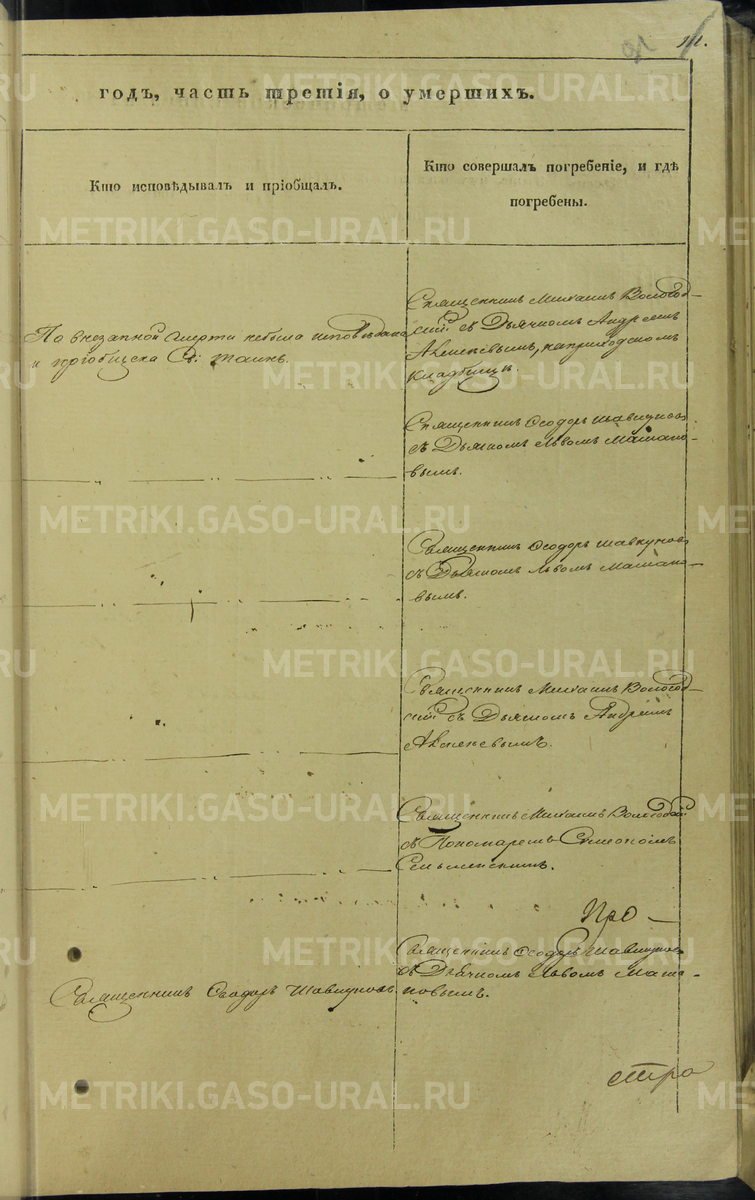 111.
годъ, часть третія, о умершихъ.
Кто исповѣдывалъ и пріобщалъ.
Кто совершалъ погребеніе, и гдѣ
погребены.
По внезапной смерти небыла исповѣдана
и пріобщена Св: Таинъ.
Священникъ Михаилъ Вологод-
скій съ Дьячкомъ Андреемъ
на приходскомъ
кладбищѣ.
Священникъ Ѳеодоръ Шавкуновъ
съ Дьячкомъ Львомъ Машано-
вымъ.
Священникъ Ѳеодоръ Шавкуновъ
съ Дьячкомъ Львомъ Машано-
вымъ.
Священникъ Михаилъ Вологод-
скій съ Дьячкомъ Андреемъ
Священникъ Михаилъ Вологодскій
съ Пономаремъ Симеономъ
Про-
Священникъ Ѳеодоръ Шавкуновъ.
Священникъ Ѳеодоръ Шавкуновъ
съ Дьячкомъ Львомъ Маша-
новымъ.
стро
METRIKI.GASO-URAL.RU